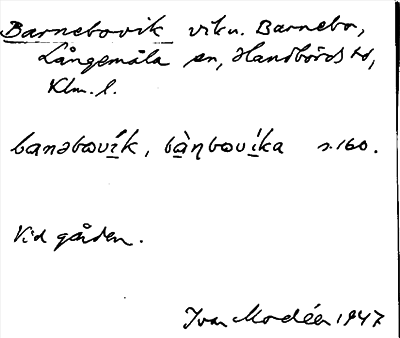 Barnebovik vik u. Barnebo,
Långemåla sn, Handbörds hd,
Klm. l.
banəbovík, bàṇbovíka s. 160.
Vid gården.
Ivar Modéer 1947